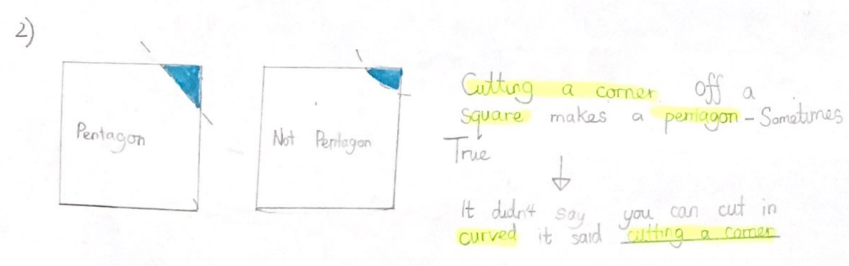 2)
Pentagon
Not Pentagon
Cutting a corner off a
square makes a pentagon - Sometimes
True
It didn't say you can cut in
curved it said cutting a corner